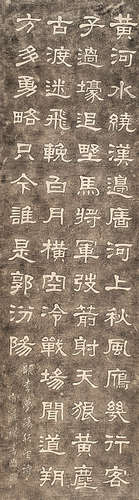 黃河水繞漢邊廧河上秋風鴈幾行客
子過壕追埜馬將軍弢箭射天狼黃塵
古渡迷飛輓白月橫空冷戰場聞道朔
方多勇略只今誰是郭汾陽